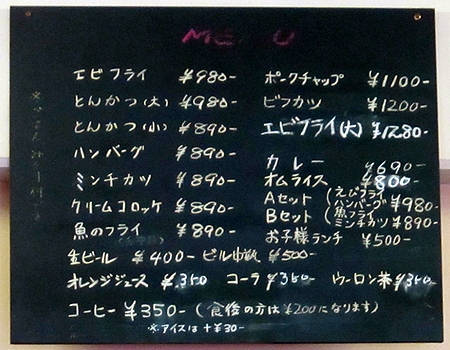 MENU
エビフライ ¥980-
とんかつ(大) ¥980-
とんかつ(小) ¥890-
ハンバーグ ¥890-
ミンチカツ ¥890-
クリームコロッケ ¥890-
魚のフライ ¥890-
ポークチャップ ¥1100-
ビフカツ ¥1200-
エビフライ(大) ¥1280-
カレー ¥690-
オムライス ¥800-
Aセット(えびフライ ハンバーグ ¥980-
Bセット(魚フライ ミンチカツ ¥890-
お子様ランチ ¥500-
生ビール ¥400- ビール中瓶 ¥500-
オレンジジュース ¥350 コーラ ¥350- ウーロン茶 ¥350-
コーヒー ¥350- (食後の方は¥200になります)
※アイスは+¥30-